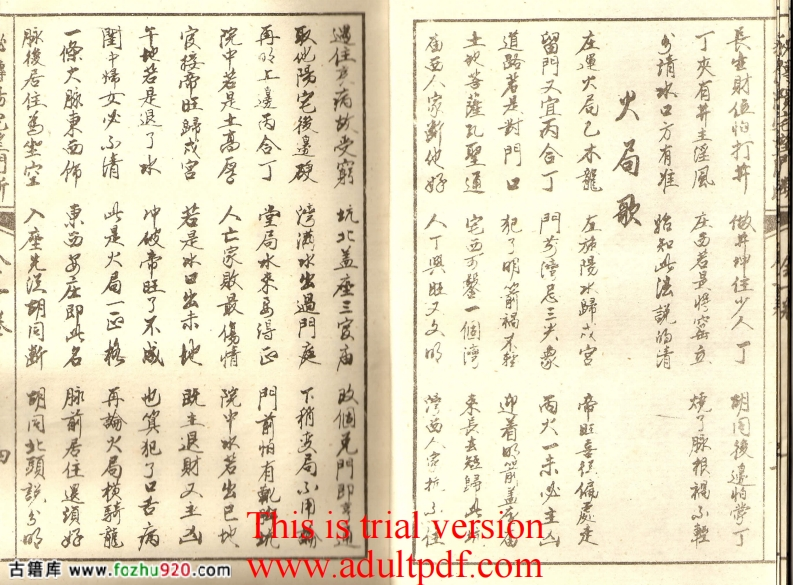 長生財位怕打井 做井坤住少人丁 胡同後邊怕掌丁
丁夾有井主淫風 庄西若是將窑立 燒了脉根禍不輕
分清水口方有准 始知此法説的清
火局歌
左運火局乙木龍 左旋陽水歸戌宮 帝旺喜從偏處走
留門又宜丙合丁 門前灣忌三尖象 丙火一来必主凶
道路若是對門口 犯了明箭禍不輕 迎着明箭盖座庙
土地菩薩孔聖通 宅西可鑿一個灣 来長去短歸此
庙西人家断他好 人丁興旺又文明 灣西人家抗不住
遇住方病故受窮 坑北盖座三官庙 改個兑門即亨通
取他陽宅後邊硬 灣滿水出過門庭 下稍变局不用
再明上邊丙合丁 堂局水来要得正 門前怕有
院中若是土高厚 人亡家敗最傷情 院中水若出巳地
官接帝旺歸戌宮 若是水口出未地 既主退財又主凶
午地若是退了水 冲破帝旺了不成 也算犯了口舌病
閨中婦女必不清 此是火局一正格 再論火局橫騎龍
一條大脉東西飾 東西安庄即此名 脉前居住還須好
脉後居住為坐空 入座先從胡同断 胡同北頭説分明
This is trial version
www.adultpdf.com
古籍库 www.fozhu920.com